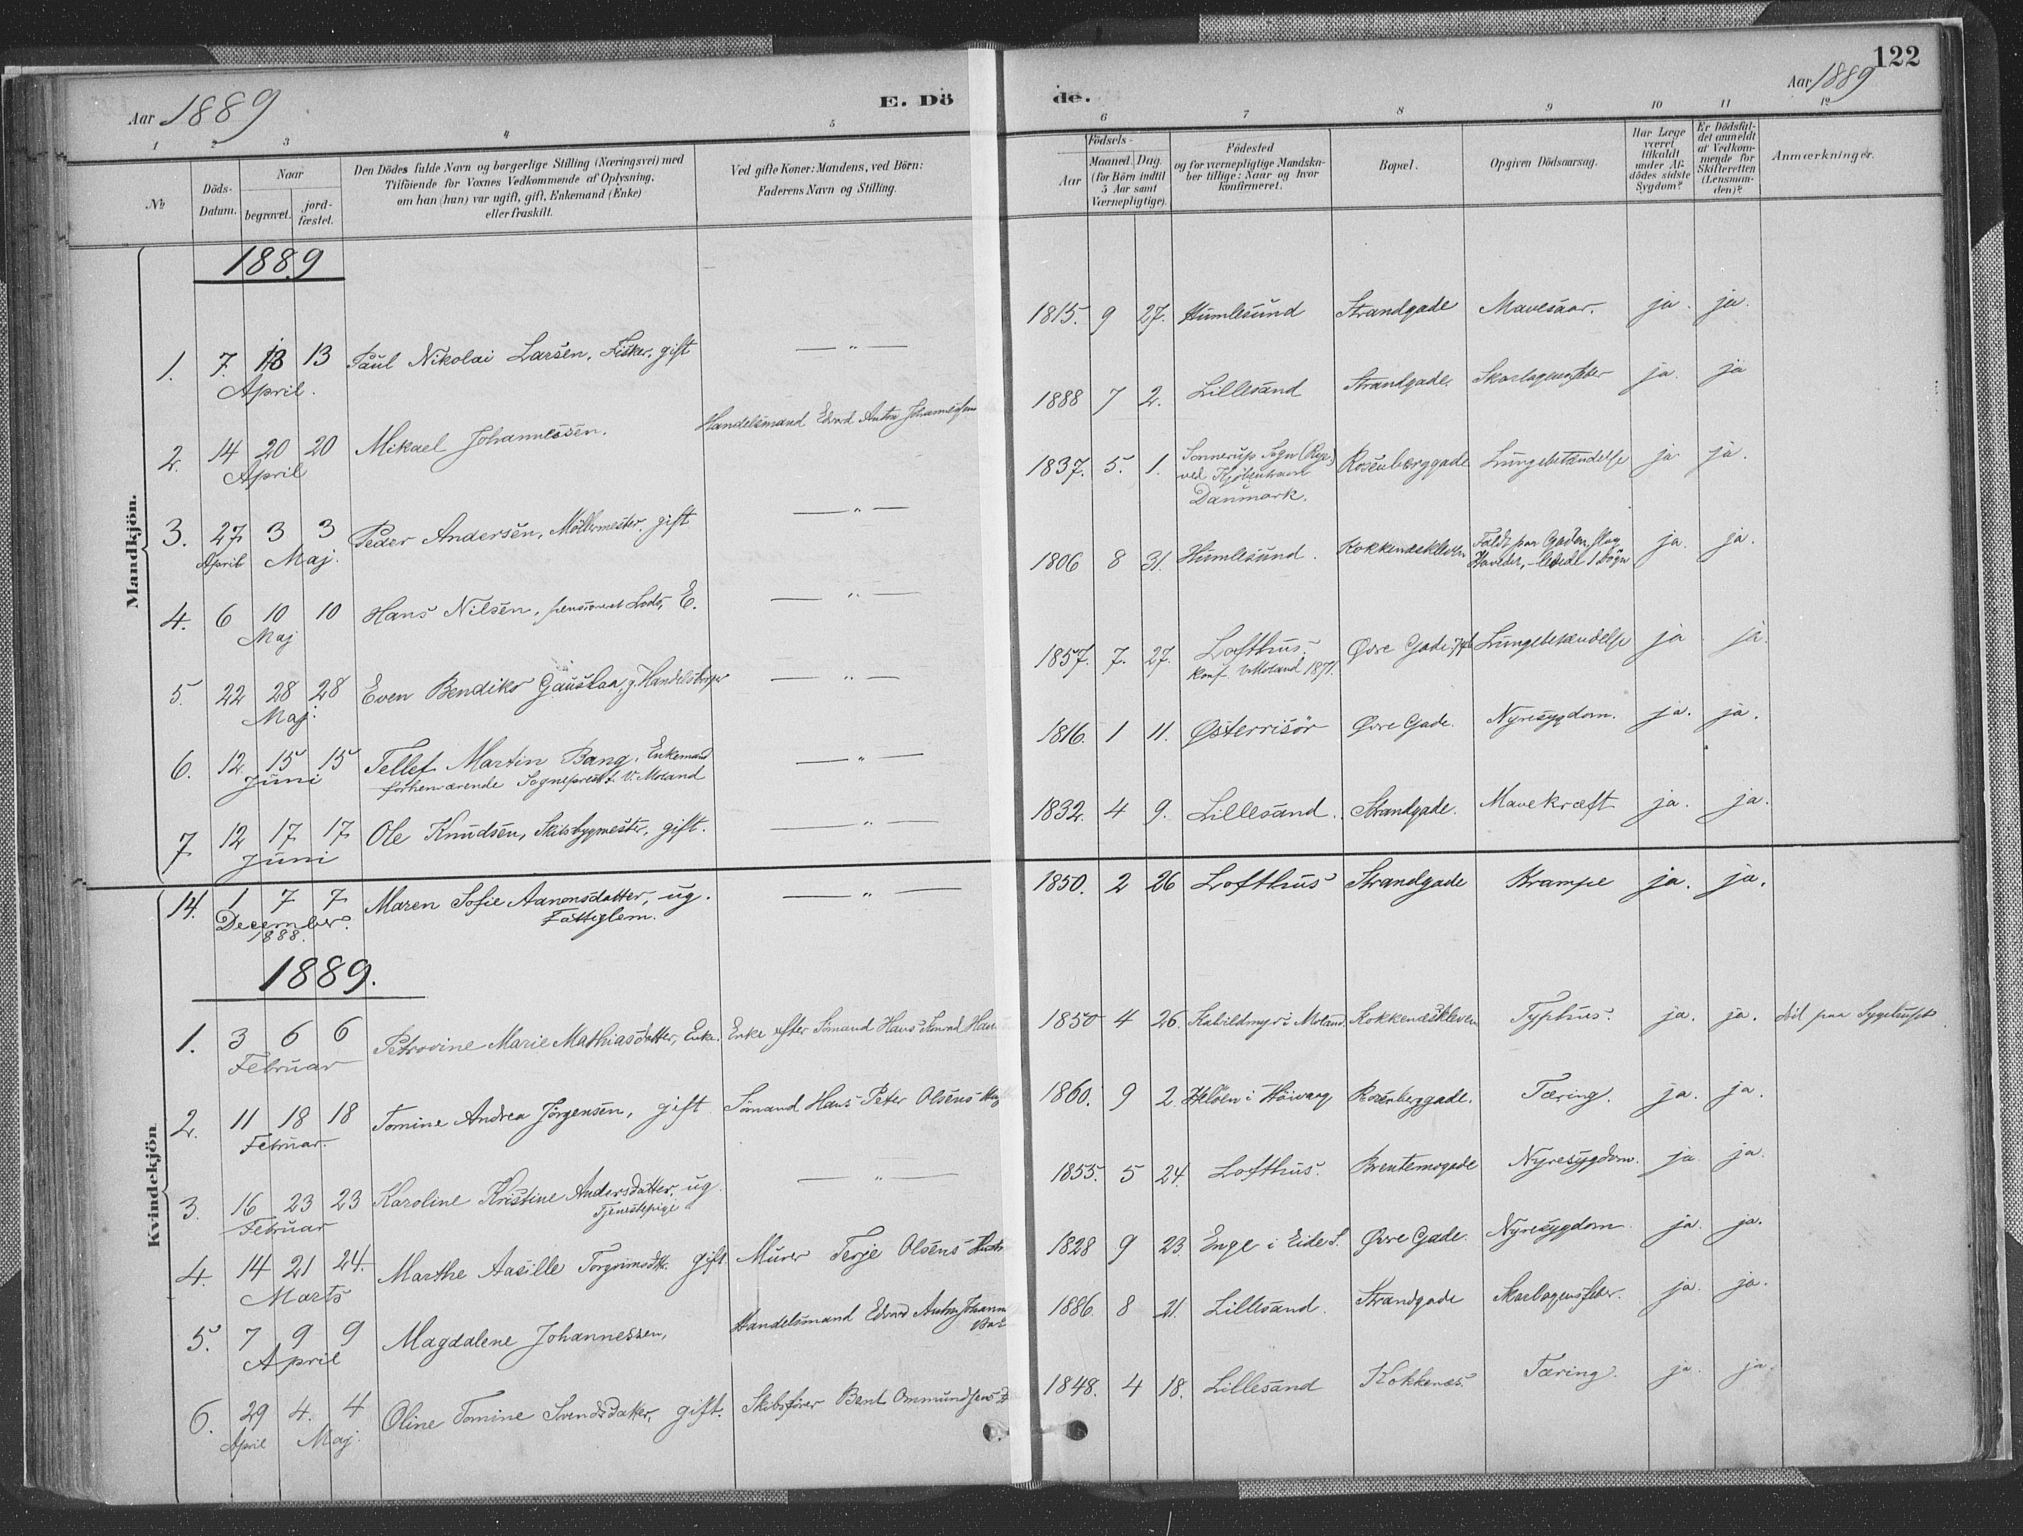 122
Aar 1889
E. Dö
de.
Aar 1889
1 2 3 4 5 6 7 8 9 10 11 12
№
Döds-Datum.
Naar
begravet.
jordfæstet.
Den Dödes fulde Navn og borgerlige Stilling (Næringsvei) med
Tilföiende for Voxnes Vedkommende af Oplysning,
om han (hun) var ugift, gift, Enkemand (Enke)
eller fraskilt.
Ved gifte Koner: Mandens, ved Börn:
Faderens Navn og Stilling.
Födsels-
Aar
Maaned. Dag.
(for Börn indtil
5 Aar samt
Værnepligtige).
Födested
og for værnepligtige Mandska-
ber tillige: Naar og hvor
konfirmeret.
Bopæl.
Opgiven Dödsaarsag.
Har Læge
været
tilkaldt
under Af-
dödes sidste
Sygdom?
Er Dödsfal-
det anmeldt
af Vedkom-
mende for
Skifteretten
(Lensman-
den)?
Anmærkninger.
Mandkjön.
1889
1. 7. 13 13 Paul Nikolai Larsen, Fisker, gift — " — 1815. 9 27. Humlesund Strandgade Mavesaar. ja. ja.
April.
2. 14 20 20 Mikael Johannessen. Handelsmand Edvard Anton Johannessen 1888 7 2. Lillesand Strandgade. Skarlagensfeber ja. ja
April
3. 27 3 3 Peder Andersen, Möllermester, gift — " — 1837. 5. 1. Sonnerup Sogn
ved Kjöbenhavn
Danmark. Rosenberggade Lungebetændelse ja ja.
April Maj.
4. 6 10 10 Hans Nilsen, pensioneret Lods, E. — " — 1806 8 31. Humlesund. Kokkenæskleven Faldt paa Gaden, slog
Hovedet, levede 1 Dögn ja. ja.
Maj
5. 22 28 28 Even Bendiks Gauslaa, g. Handelsborger — " — 1857. 7. 27. Lofthus.
Konf. V. Moland 1871. Øvre Gade Lungebetændelse ja ja.
Maj.
6. 12 15 15 Tellef Martin Bang, Enkemand — " — 1816. 1 11. Østerrisör Øvre Gade. Nyresygdom. ja. ja.
Juni forhenværende Sogneprest t. V. Moland
7 12 17 17 Ole Knudsen, Skibsbygmester, gift. — " — 1832. 4 9. Lillesand. Strandgade. Mavekræft ja. ja.
Juni
Kvindekjön
14. 1 7 7 Maren Sofie Aanonsdatter, ug. — " — 1850. 2 26 Lofthus Strandgade Krampe ja. ja.
December. Fattiglem.
1888.
1889.
1. 3 6 6 Petrovine Marie Mathiasdatter, Enke. Enke efter Sömand Hans 1850 4 26. Kabildmyr i Moland. Kokkenæskleven Typhus. ja. ja. död paa Sygehuset
Februar
2. 11 18 18 Tomine Andrea Jörgensen, gift. Sömand Hans Peter Olsens 1860. 9 2. i Höivaag Rosenberggade. Tæring. ja. ja.
Februar.
3. 16 23 23 Karoline Kristine Andersdatter, ug. — " — 1855. 5 24. Lofthus. Brentemogade Nyresygdom. ja. ja.
Februar Tjenestepige
4. 14 21 24. Marthe Aasille Torgrimsdtr. gift. Murer Terje Olsens 1828 9 23. Enge i Eide S. Øvre Gade. Nyresygdom. ja. ja.
Marts
5. 7 9 9 Magdalene Johannessen, Handelsmand Edvard Anton 1886. 8 21. Lillesand. Strandgade Skarlagensfeber. ja. ja.
April
6. 29 4. 4 Oline Tomine Svendsdatter, gift. Skibsförer Bent Ommundsens 1848. 4 18. Lillesand Kokkenæs. Tæring. ja. ja.
April Maj.